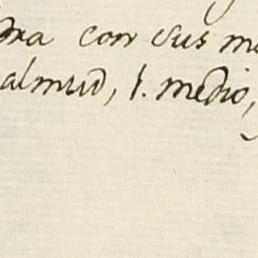 con sus
almud, 1. medio,